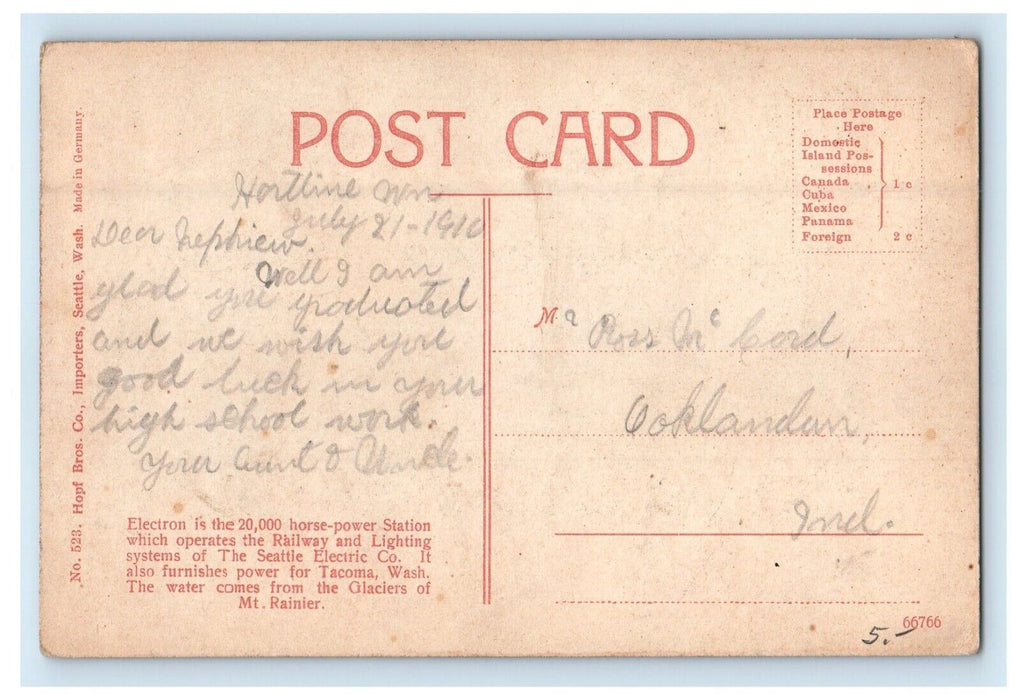 POST CARD
Place Postage
Here
Domestic
Island Pos-
sessions
Canada
Cuba
Mexico
Panama
1 c
Foreign 2 c
No. 523. Hopf Bros. Co., Importers, Seattle, Wash. Made in Germany.
Hartline Wn
July 21-1910
Dear Nephiew.
Well I am
glad you graduated
and we wish you
good luck in your
high school work.
Your Aunt & Uncle.
Electron is the 20,000 horse-power Station
which operates the Railway and Lighting
systems of The Seattle Electric Co. It
also furnishes power for Tacoma, Wash.
The water comes from the Glaciers of
Mt. Rainier.
Ross Mc Cord,
Oaklandun,
Ind.
66766
5.-